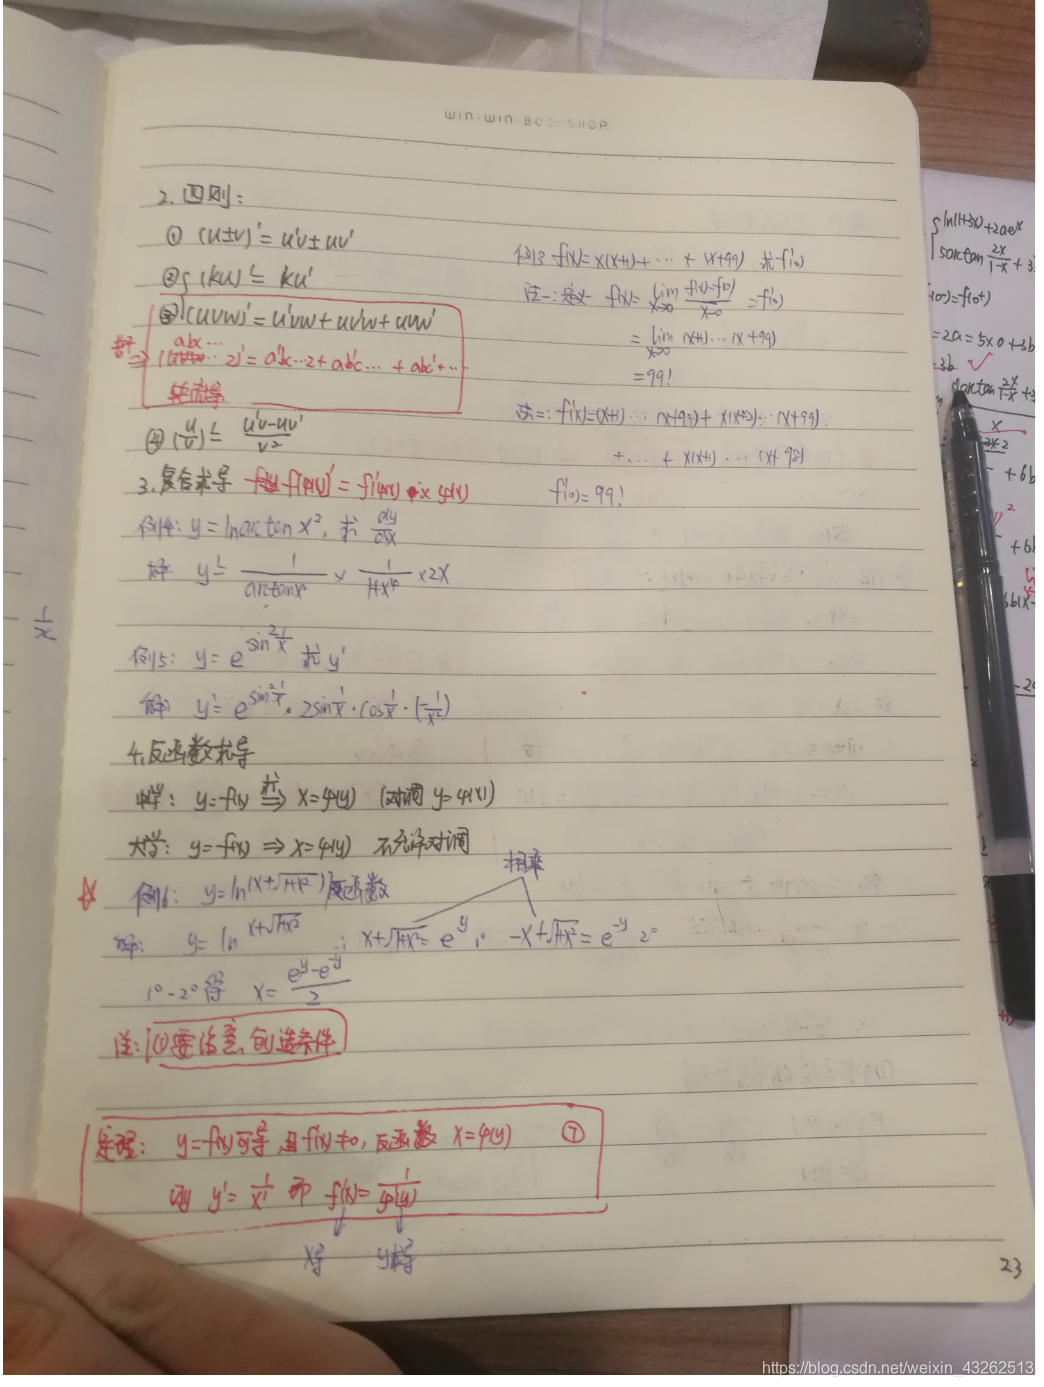 WIN-WIN BOOKSHOP
2.四则:
① (u±v)'=u'v±uv'
② (ku)'=ku'
③ (uvw)'=u'vw+uv'w+uvw'
abc…
2)'=a'bc…2+ab'c…+abc'+…
轮流导
④ (u/v)'= (u'v-uv')/v²
3.复合求导 f[φ(x)]'=f'φ(x)·x φ(x)
例4: y=lnarctanx², 求 dy/dx
解: y'= 1/arctanx² × 1/(1+x⁴) ×2x
1/x
例5: y=e^(sin² 1/x) 求y'
解: y'=e^(sin² 1/x)·2sin 1/x·cos 1/x·(-1/x²)
4.反函数求导
中学: y=f(x) 求⇒ x=φ(y) (对调 y=φ(x))
大学: y=f(x) ⇒ x=φ(y) 不允许对调
☆ 例6: y=ln(x+√(1+x²)) 反函数
相乘
解: y=ln x+√(1+x²) ∴ x+√(1+x²)=e^y 1° -x+√(1+x²)=e^-y 2°
1°-2°得 x= (e^y-e^-y)/2
注: (1)要注意,创造条件
定理: y=f(x)可导,且f'(x)≠0,反函数 x=φ(y) ⑦
则 y'=1/x' 即 f'(x)=1/φ'(y)
x导 y导
例3 f(x)=x(x+1)+…+(x+99) 求f'(0)
法一:定义 f'(x)=lim x→0 (f(x)-f(0))/(x-0) =f'(0)
=lim x→0 (x+1)…(x+99)
=99!
法二: f'(x)=(x+1)…(x+99)+x(x+2)…(x+99)
+…+x(x+1)…(x+98)
f'(0)=99!
23
ln(1+3x)+2ae^x
5arctan 2x/(1-x) +3
=f(0+)
=2a=5×0+3b
=3b ✓
arctan 2x/(1-x)
x
+6b
https://blog.csdn.net/weixin_43262513